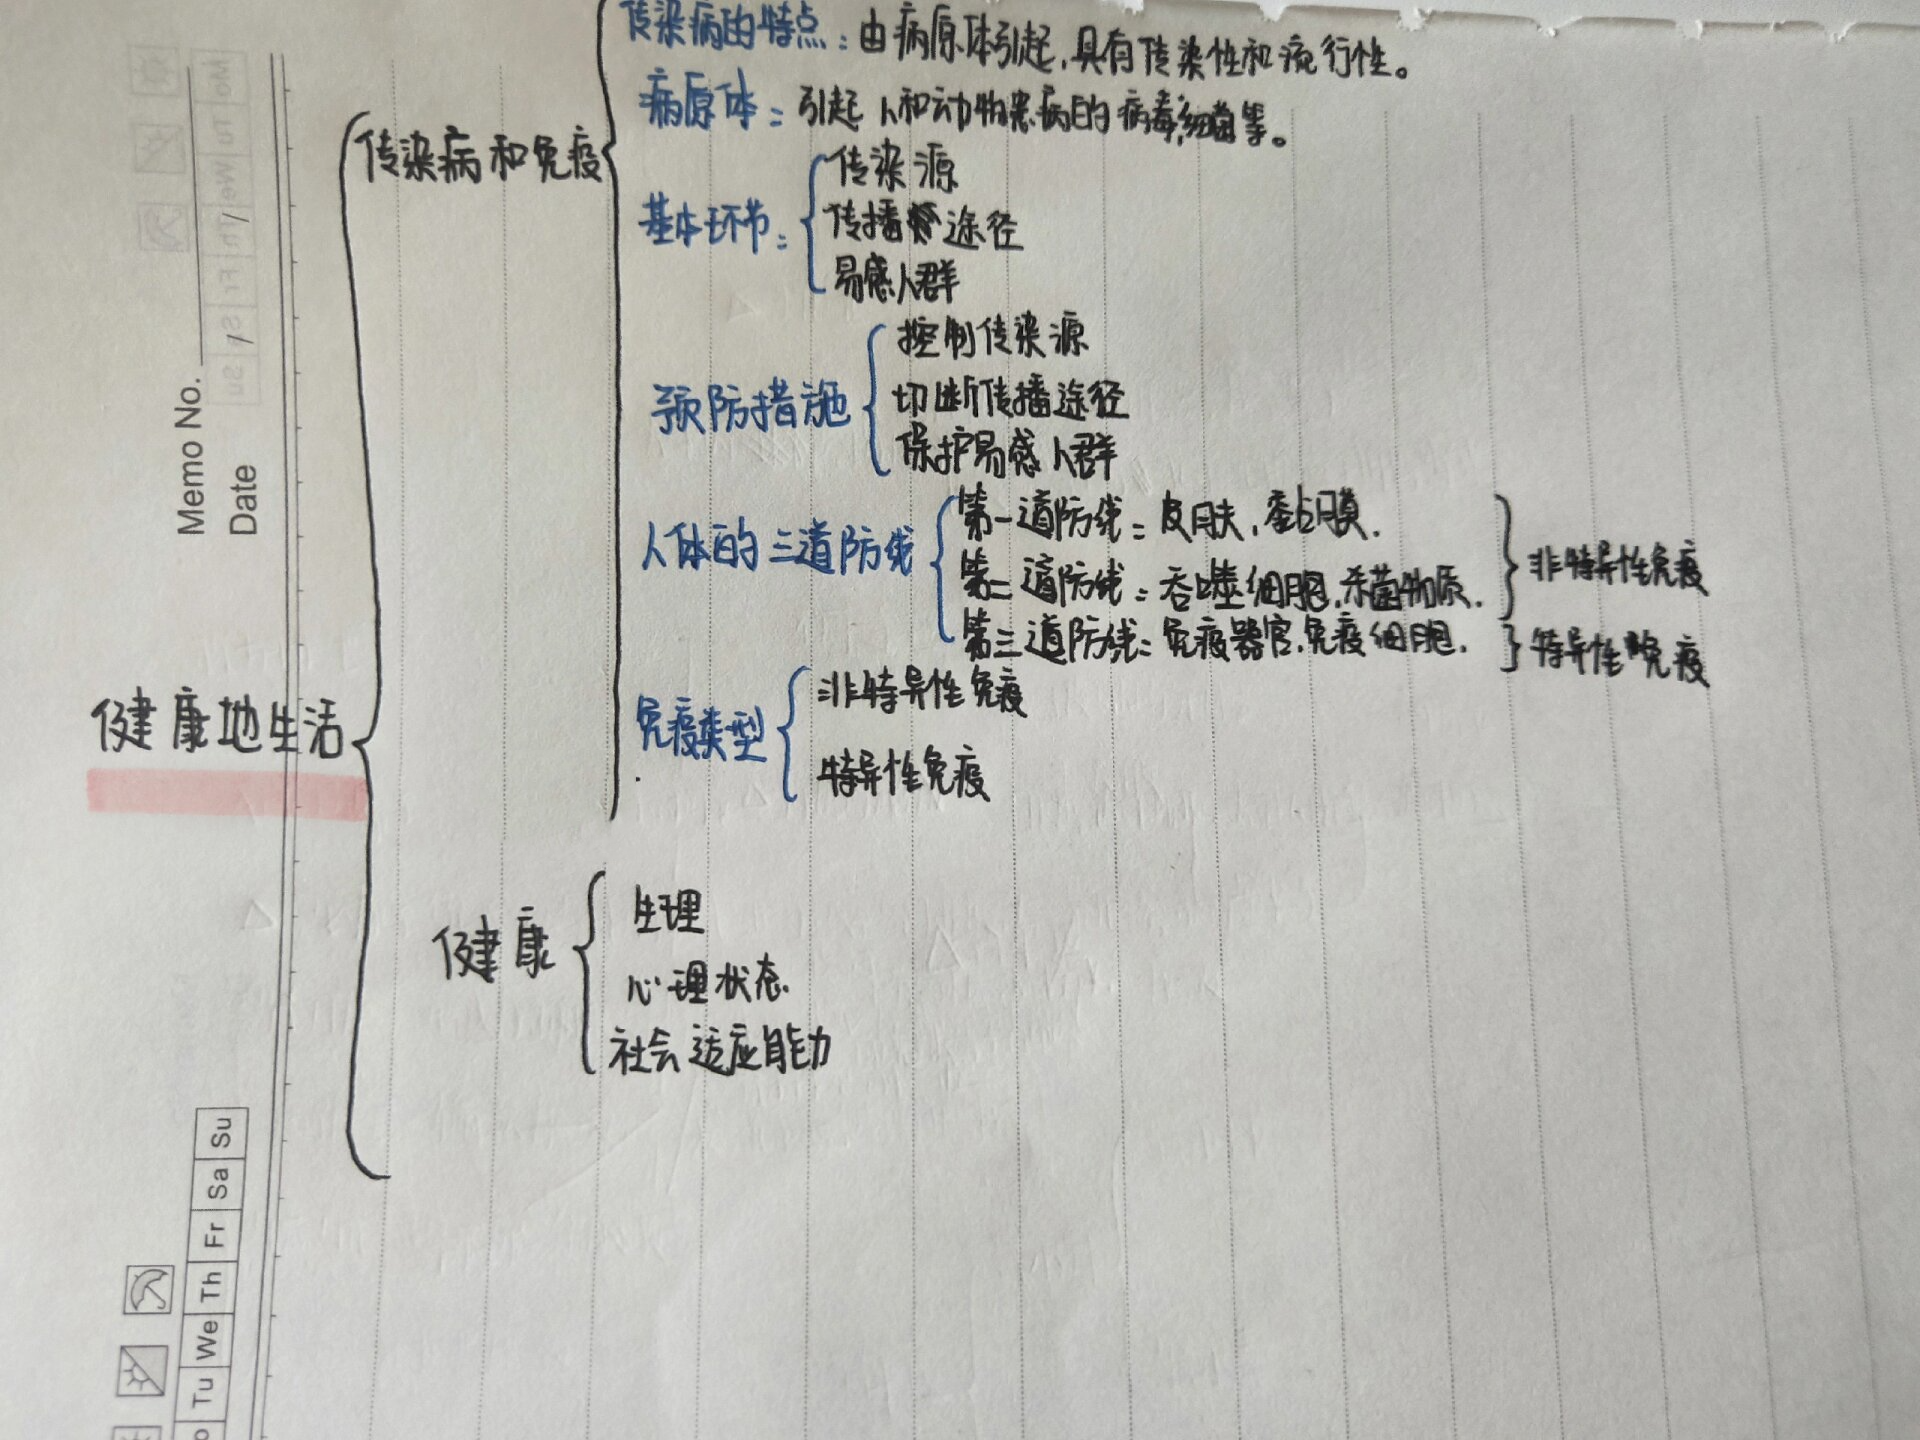 传染病的特点：由病原体引起，具有传染性和流行性。
病原体：引起人和动物患病的病毒，细菌等。
传染病和免疫
基本环节：
传染源
传播途径
易感人群
预防措施
控制传染源
切断传播途径
保护易感人群
人体的三道防线
第一道防线：皮肤，黏膜．
第二道防线：吞噬细胞．杀菌物质．
第三道防线：免疫器官．免疫细胞．
非特异性免疫
特异性免疫
免疫类型
非特异性免疫
特异性免疫
健康地生活
健康
生理
心理状态
社会适应能力
Memo No.
Date
Mo Tu We Th Fr Sa Su
Tu We Th Fr Sa Su